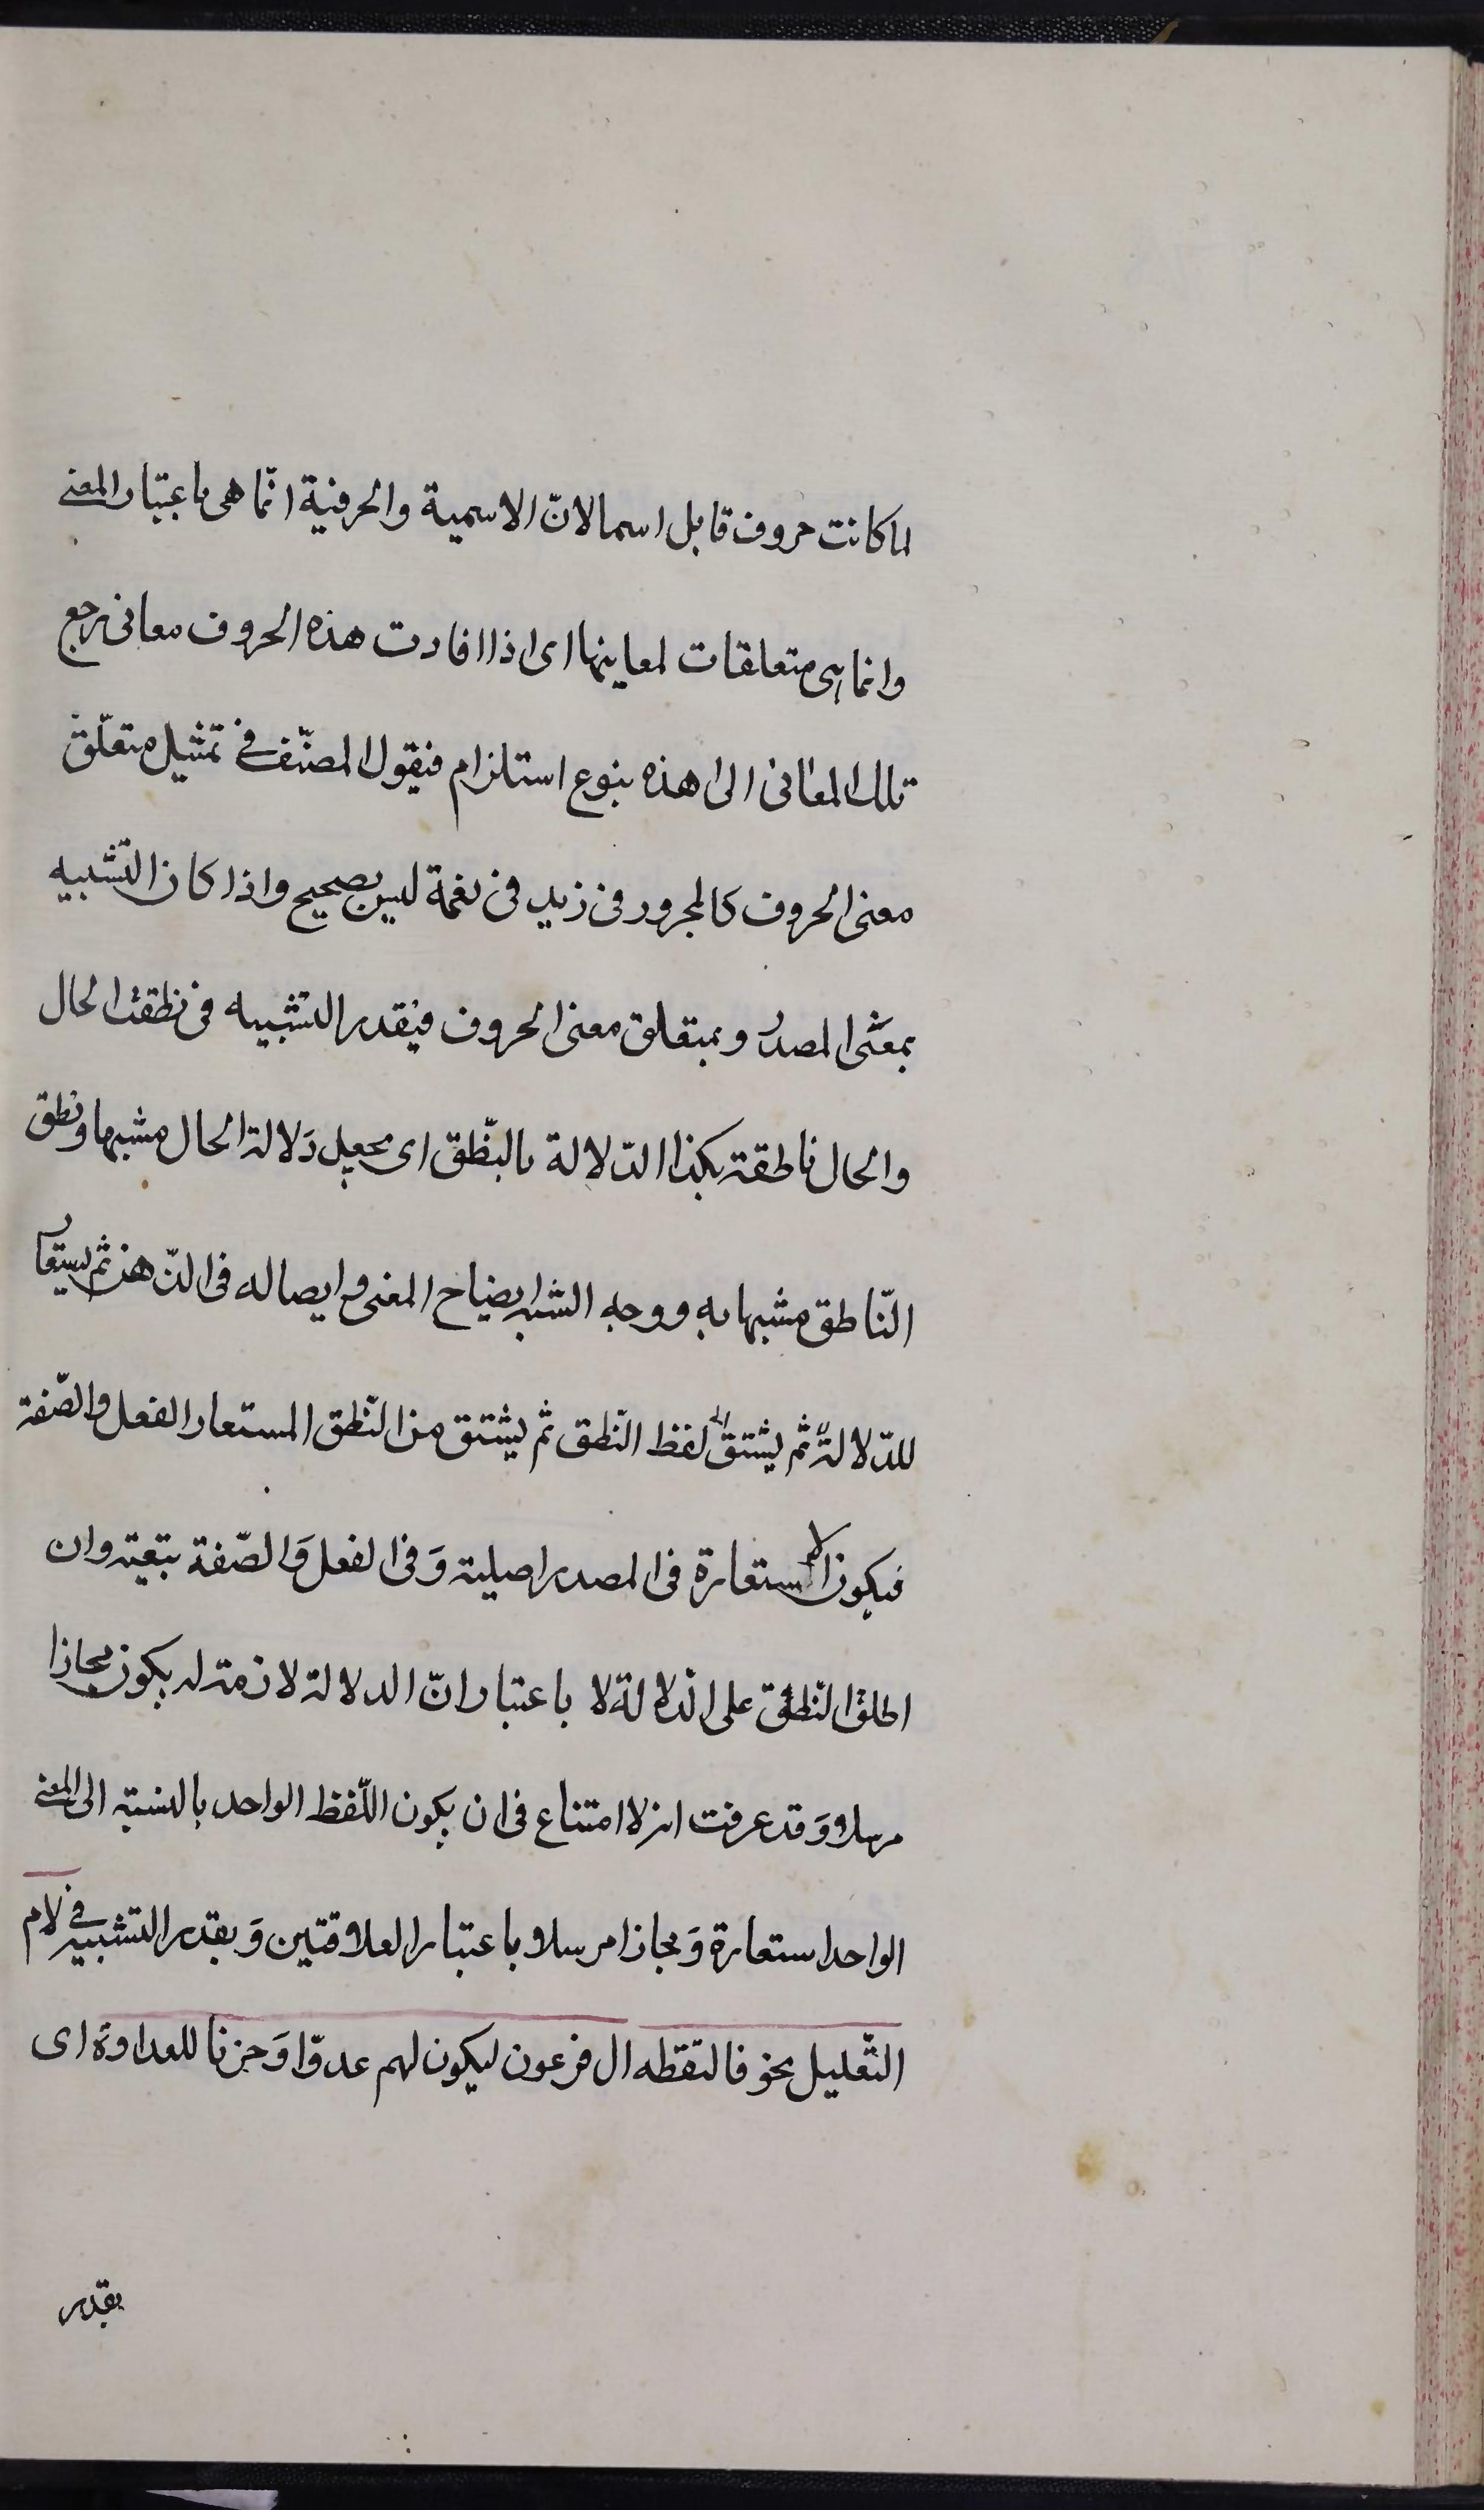 لما كانت حروف قابل اسما لانّ الاسمية والحرفية انّما هى باعتبار المعنى
وانما هى متعلقات لمعاينها اى اذا افادت هذه الحروف معانى ترجع
تلك المعانى الى هذه بنوع استلزام فيقول المصنّف فى تمثيل متعلّق
معنى الحروف كالمجرور فى زيد فى نعمة ليس بصحيح واذا كان التّشبيه
بمعنى المصدر وبمتعلق معنى الحروف فيقدر التشبيه فى نطقت الحال
والحال ناطقة بكذا الدّلالة بالنّطق اى يجعل دَلالة الحال مشبها ونطق
النّاطق مشبها به ووجه الشبه ايضاح المعنى وايصاله فى الذّهن ثم يستعار
للدّلالة ثم يشتق لفظ النّطق ثم يشتق من النّطق المستعار الفعل والصّفة
فيكون الاستعارة فى المصدر اصلية وَفى الفعل وَالصّفة تبعية وان
اطلق النّطق على الدلالة لا باعتبار انّ الدلالة لازمة له يكون مجازا
مرسلا وَقد عرفت انه لا امتناع فى ان يكون اللّفظ الواحد بالنسبة الى المعنى
الواحد استعارة وَمجازا مرسلا باعتبار العلاقتين وَيقدر التشبيه فى لام
التّعليل نحو فالتقطه ال فرعون ليكون لهم عدوّا وَحزنا للعداوة اى
يقدر